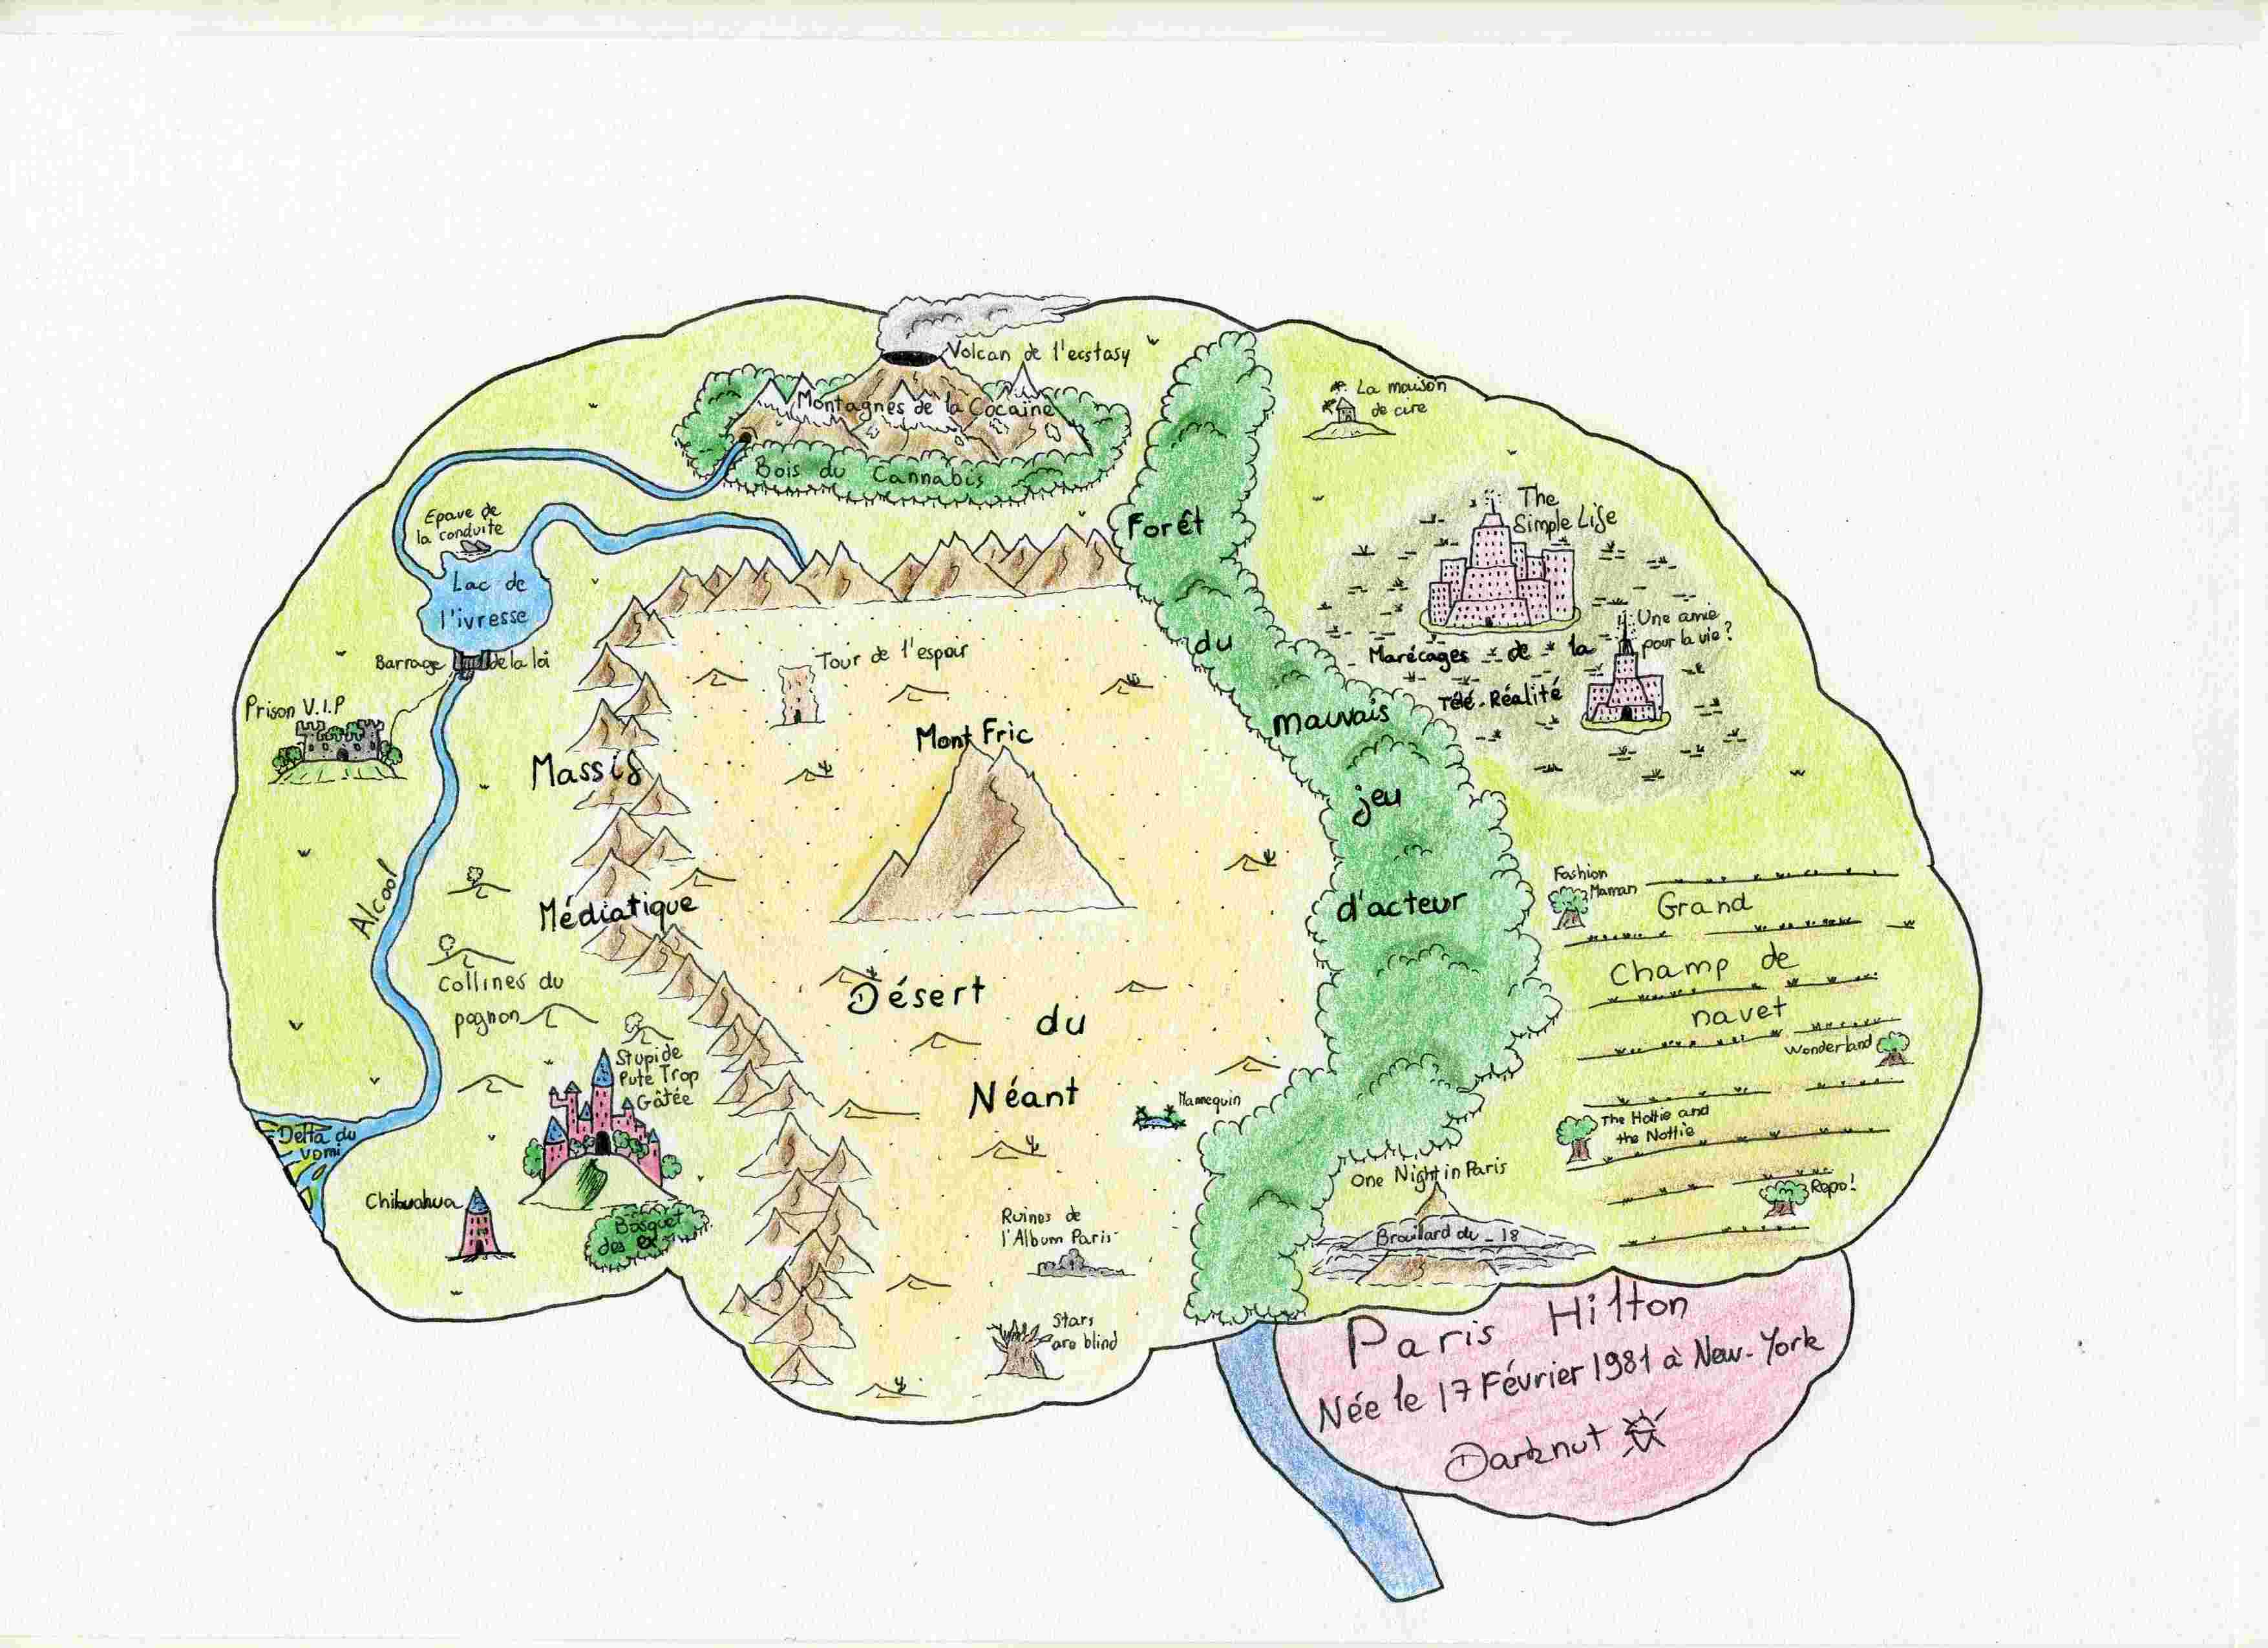 Volcan de l'ecstasy
Montagnes de la Cocaïne
Bois du Cannabis
La maison
de cire
Epave de
la conduite
Lac de
l'ivresse
Barrage de la loi
Prison V.I.P
Alcool
Delta du
vomi
Massif
Médiatique
Collines du
pognon
Stupide
Pute Trop
Gâtée
Chihuahua
Bosquet
des ex
Tour de l'espoir
Mont Fric
Désert
du
Néant
Mannequin
Ruines de
l'Album Paris
Stars
are blind
Forêt
du
mauvais
jeu
d'acteur
The
Simple Life
Une amie
pour la vie?
Marécages de la
Télé-Réalité
Fashion
Maman
Grand
Champ de
navet
Wonderland
The Hottie and
the Nottie
Repo!
One Night in Paris
Brouillard du -18
Paris Hilton
Née le 17 Février 1981 à New-York
Darknut